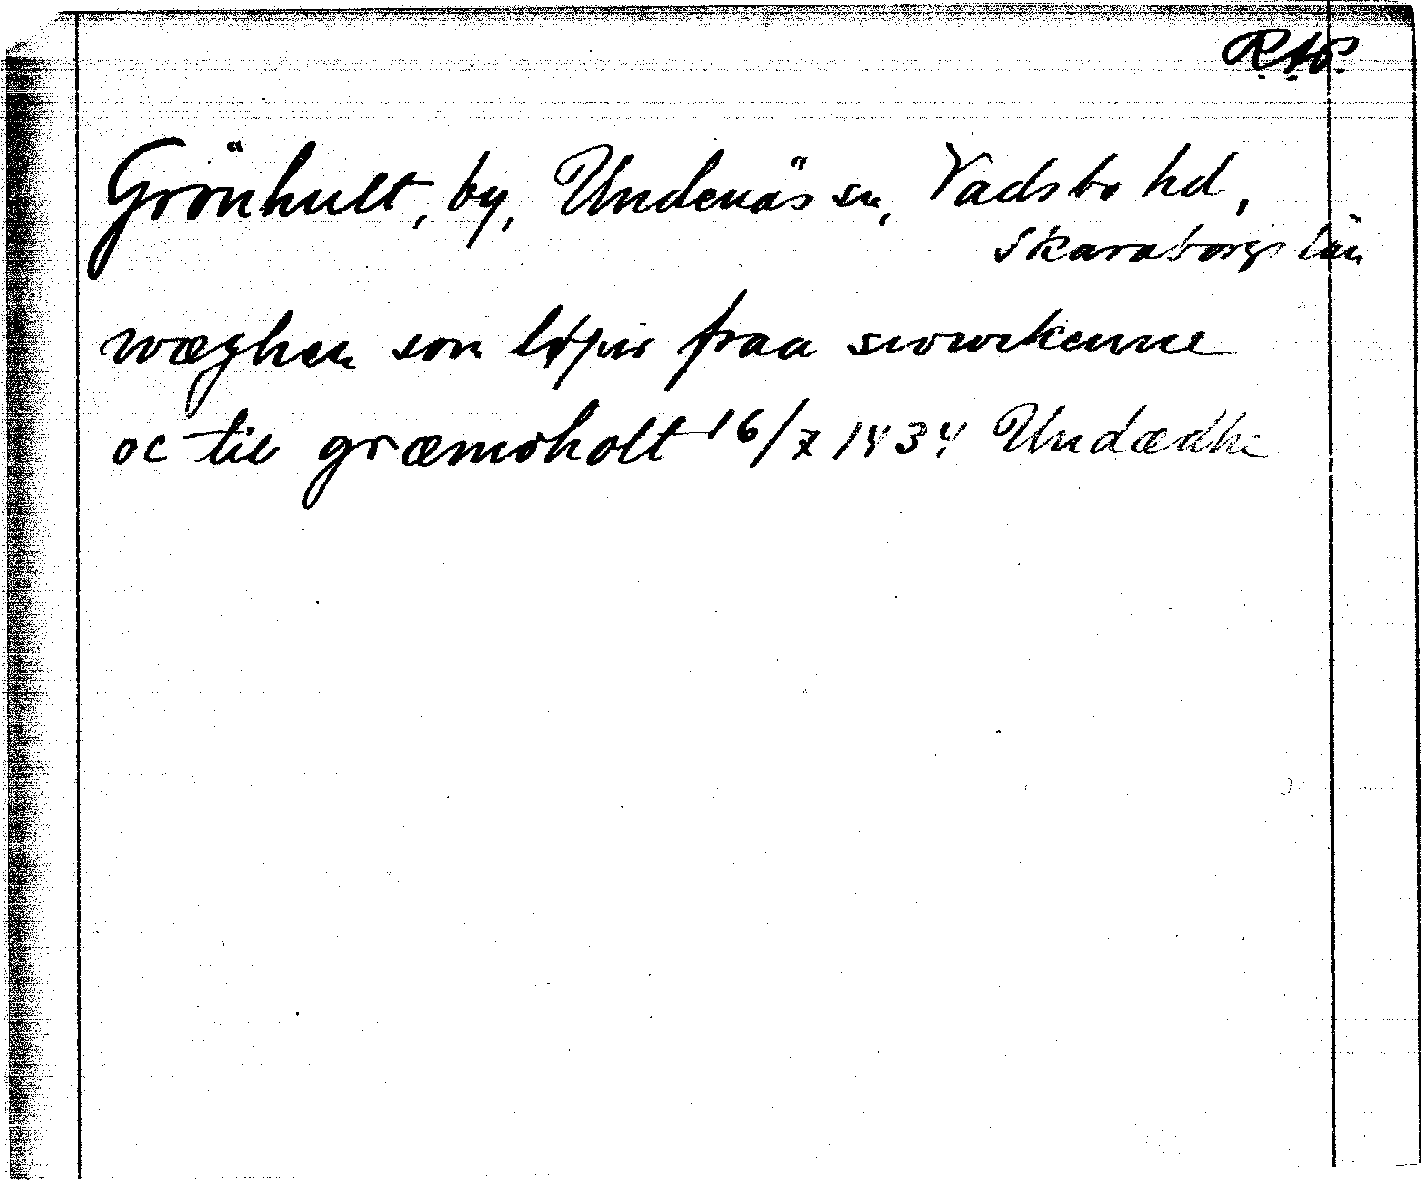 R.A.P.
Grönhult, by, Undenäs sn, Vadsbo hd,
Skaraborgs län
wæghen som løpir fraa
oc til græmsholt 16/7 1434 Undædhe